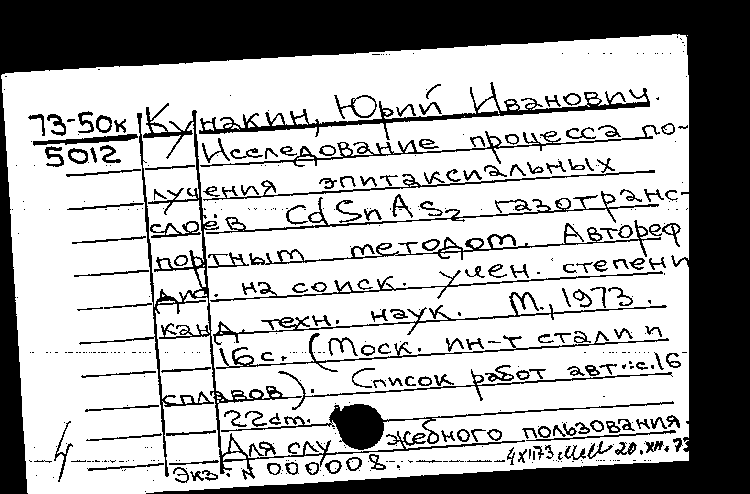 73-50к Кунакин, Юрий Иванович.
5012 Исследование процесса по-
лучения эпитаксиальных
слоёв CdSnAs2 газотранс-
портным методом. Автореф
дис. на соиск. учен. степени
канд. техн. наук. М., 1973.
16 с. (Моск. ин-т стали и
сплавов). Список работ авт.: с.16
22 cm.
Для служебного пользования.
Экз. N 000008. 20.XII.73